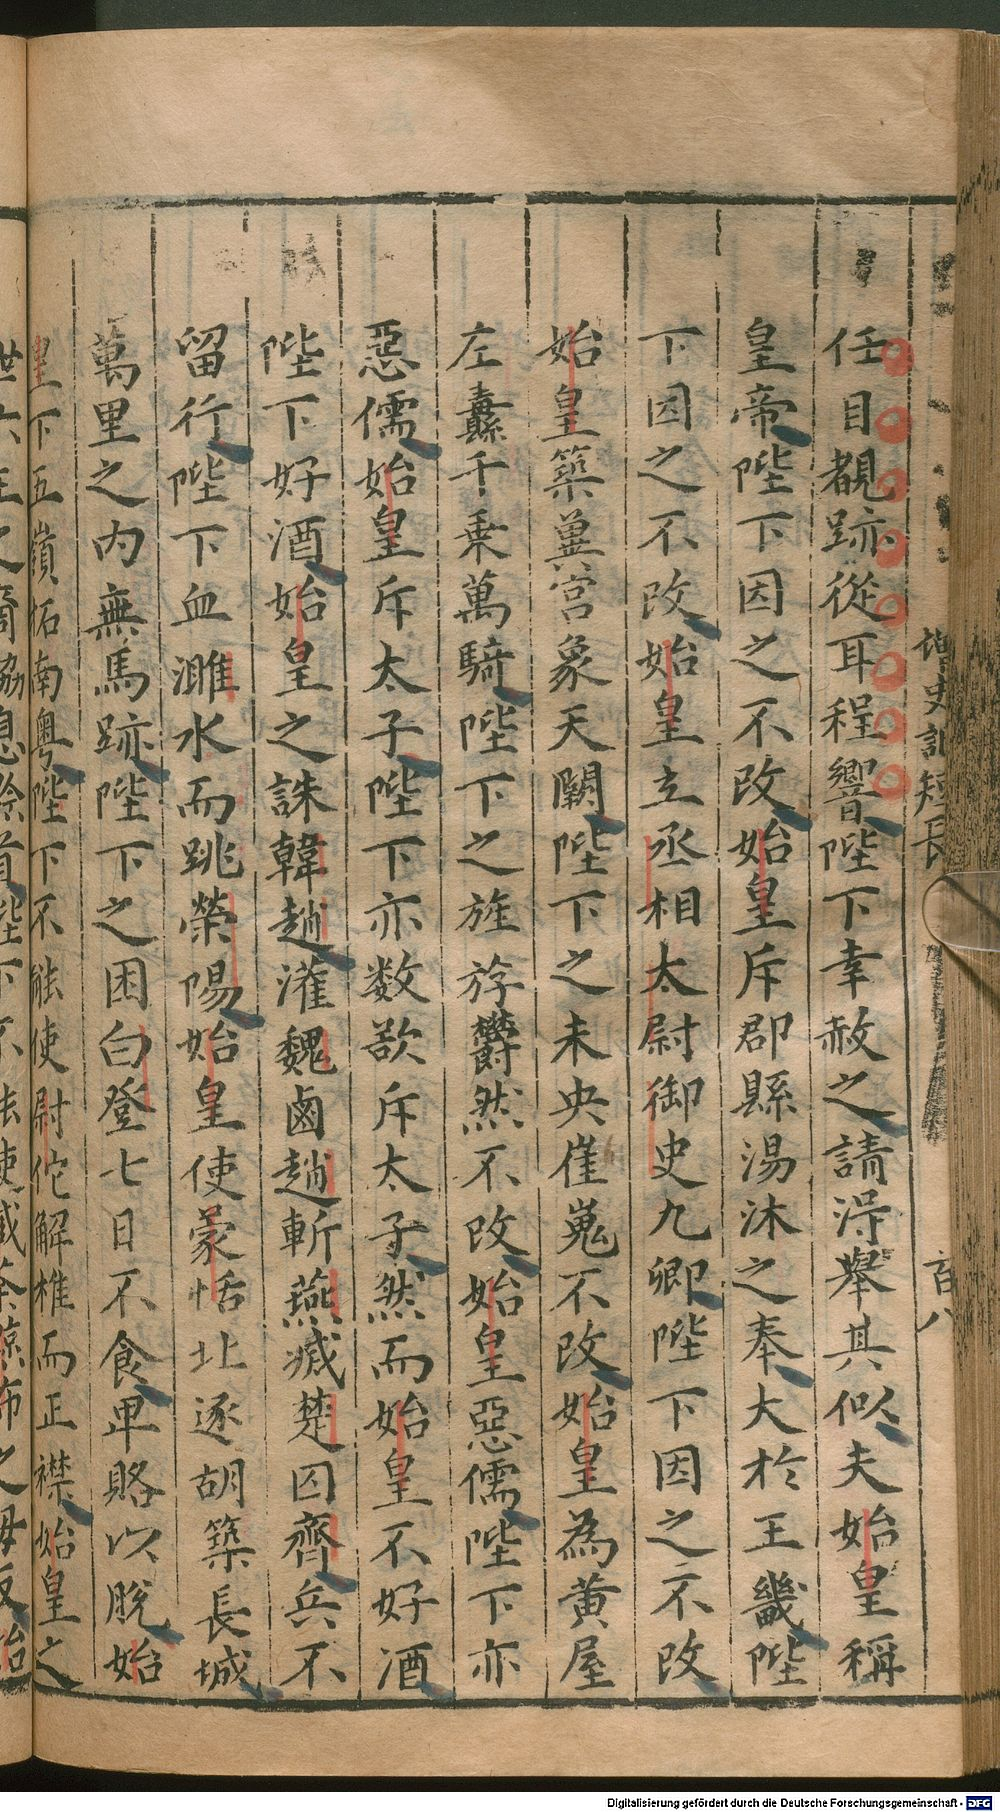 任目覩跡從耳程響陛下幸赦之請淂舉其似夫始皇稱
皇帝陛下因之不改始皇斥郡縣湯沐之奉大於王畿陛
下因之不改始皇立丞相太尉御史九卿陛下因之不改
始皇築冀宮象天闕陛下之未央崔嵬不改始皇為黃屋
左纛千乗萬騎陛下之旌斿欝然不改始皇惡儒陛下亦
惡儒始皇斥太子陛下亦数欲斥太子然而始皇不好酒
陛下好酒始皇之誅韓趙灌魏鹵趙斬燕滅楚囚齊兵不
留行陛下血濉水而跳滎陽始皇使蒙恬北逐胡築長城
萬里之内無馬跡陛下之困白登七日不食卑賂以脫始
皇下五嶺拓南粵陛下不能使尉佗解椎而正襟始皇之
短長
百八
Digitalisierung gefördert durch die Deutsche Forschungsgemeinschaft - DFG